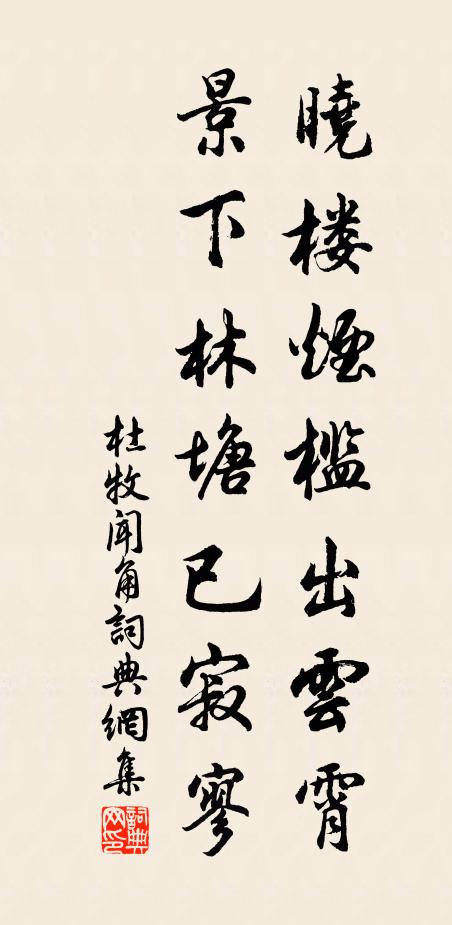 曉楼煙檻出雲霄
景下林塘已寂寥
杜牧聞角詞典網集
詞典
网印